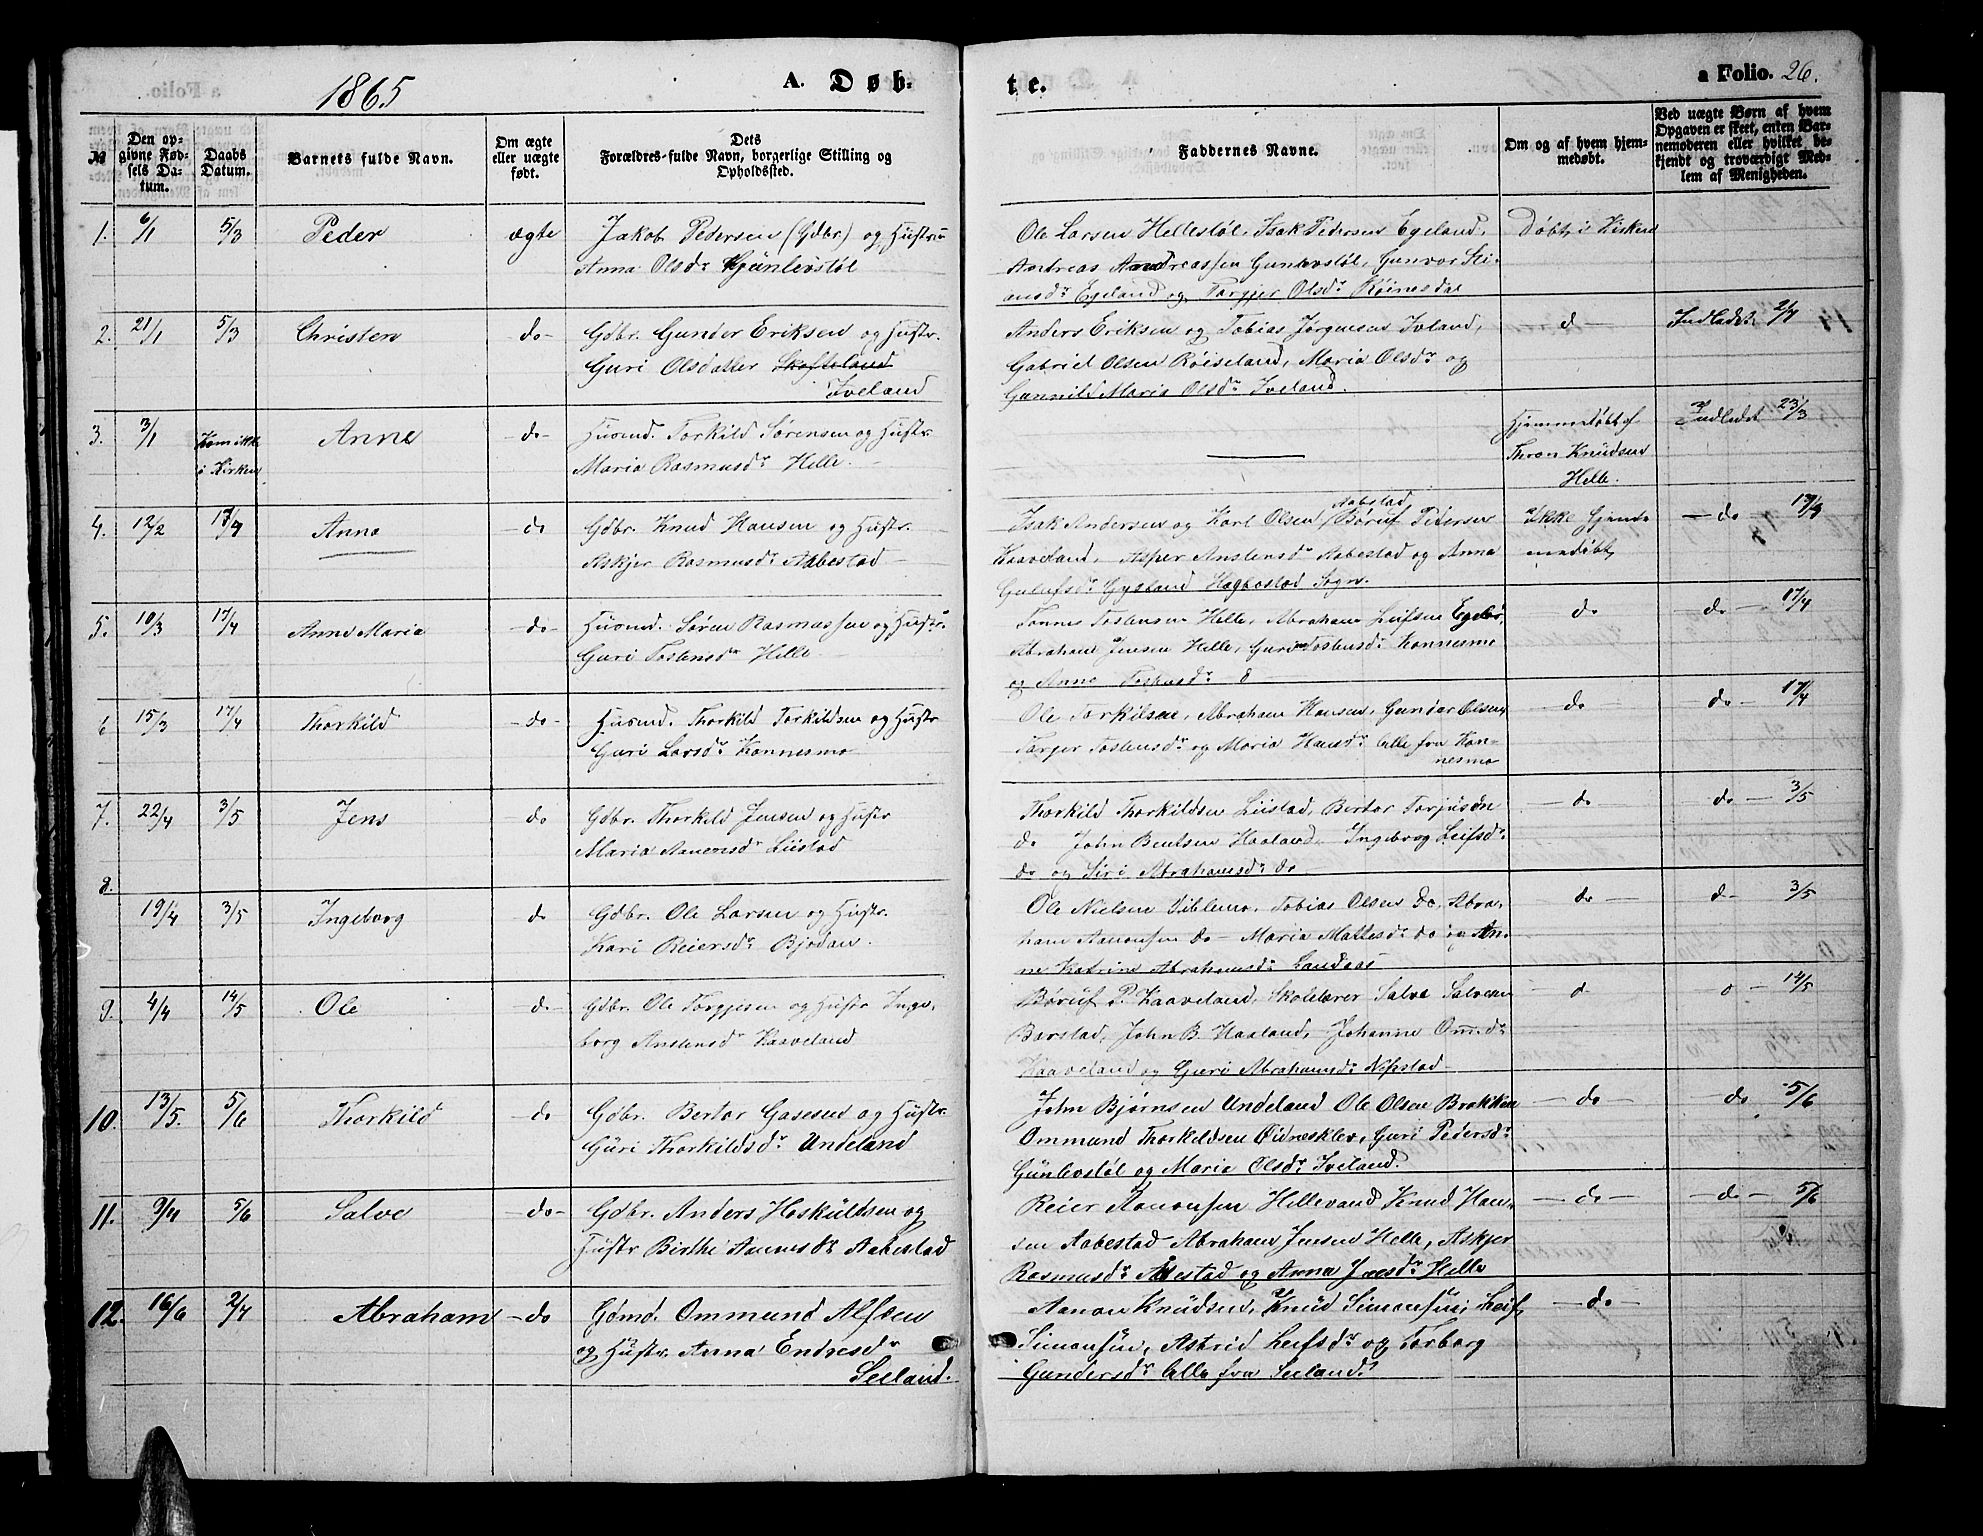 1865
A. Døb-
te.
a Folio. 26.
№
Den op-
givne Fød-
sels Da-
tum.
Daabs
Datum.
Barnets fulde Navn.
Om ægte
eller uægte
født.
Dets
Forældres fulde Navn, borgerlige Stilling og
Opholdssted.
Faddernes Navne.
Om og af hvem hjem-
medøbt.
Ved uægte Børn af hvem
Opgaven er skeet, enten Bar-
nemoderen eller hvilket be-
kjendt og troværdigt Med-
lem af Menigheden.
1. 6/1 5/3 Peder ægte Jakob Pedersen (Gdbr) og Hustru
Anna Olsdr Gunlevstøl
Ole Larsen Hellestøl, Isak Pedersen Egeland,
Andreas Andreassen Gunlevstøl, Gunvor Sti-
ansdr Egeland og Torgjer Olsdr Røinesdal
Døbt i Kirken
2. 21/1 5/3 Christen do Gdbr. Gunder Eriksen og Hustr.
Guri Olsdatter Skofteland
Iveland
Anders Eriksen og Tobias Jørgensen Iveland,
Gabriel Olsen Røiseland, Maria Olsdr og
Gunnild Maria Olsdr Iveland.
d Indladet 2/7
3. 3/1 Kom ikke
i Kirken
Anne do Husmd. Torkild Sørensen og Hustr.
Maria Rasmusdr Helle.
Hjemmedøbt af
Thron Knudsen
Helle.
Indladet 23/3
4. 12/2 17/4 Anna do Gdbr. Knud Hansen og Hustr.
Askjer Rasmusdr Aabestad
Isak Andersen og Karl Olsen Aabestad Børuf Pedersen
Haaveland, Asper Anstensdr Aabestad og Anna
Gulufsdr Gysland Hægbostad Sogn.
Ikke hjem-
medøbt
do 17/4
5. 10/3 17/4 Anne Maria do Husmd. Søren Rasmussen og Hustr.
Guri Tostensdr Helle.
Tønnes Tostensen Helle, Abraham Leifsen Egebø,
Abraham Jensen Helle, Guri Tostensdr Konnesmo
og Anne Tostensdr d
do do 17/4
6 15/3 17/4 Thorkild do Husmd. Thorkild Torkildsen og Hustr
Guri Larsdr Konnesmo
Ole Torkilsen, Abraham Hansen, Gunder Olsen,
Torger Tostensdr og Maria Hansdr alle fra Kon-
nesmo
do do 17/4
7. 22/4 3/5 Jens do Gdbr. Thorkild Jensen og Hustr
Maria Aanensdr Liestad
Thorkild Thorkildsen Liestad, Bertor Torjusøn
do John Bentsen Haaland, Ingeborg Leifsdr
do og Siri Abrahamsdr do
do do 3/5
8. 19/4 3/5 Ingeborg do Gdbr. Ole Larsen og Hustr.
Kari Reiersdr Bjodan.
Ole Nielsen Viblemo, Tobias Olsen do, Abra-
ham Aanonsen do Maria Mattesdr do og An-
ne Katrine Abrahamsdr Landaas
do d 3/5
9. 4/4 14/5 Ole do Gdbr. Ole Torgjesen og Hustr Inge-
borg Anstensdr Haaveland
Børuf P. Haaveland, Skolelærer Salve Salvesen
Barstad, John B. Haaland, Johanne Om.dr
Haaveland og Guri Abrahamsdr Nepstad
d d 14/5
10. 13/5. 5/6 Thorkild do Gdbr. Bertor Gasesen og Hustr.
Guri Thorkildsdr Undeland
John Bjørnsen Undeland Ole Olsen Brækken
Ommund Thorkildsen Øidnesklev, Guri Pedersdr
Gunlevstøl og Maria Olsdr Iveland.
do do 5/6
11. 9/4 5/6 Salve do Gdbr. Anders Hoskuldsen og
Hustr Birthe Aanensdr Aabestad
Reier Aanonsen Hillevand Knud Han-
sen Aabestad Abraham Jensen Helle, Askjer
Rasmusdr Abestad og Anna Jensdr Helle
do do 5/6
12. 16/6 2/7 Abraham do Gdmd. Ommund Alfsen
og Hustr. Anna Endresdr
Seeland.
Aanon Knudsen, Knud Simonsen, Leif
Simonsen, Astrid Leifsdr og Torborg
Gundersdr alle fra Seeland
do